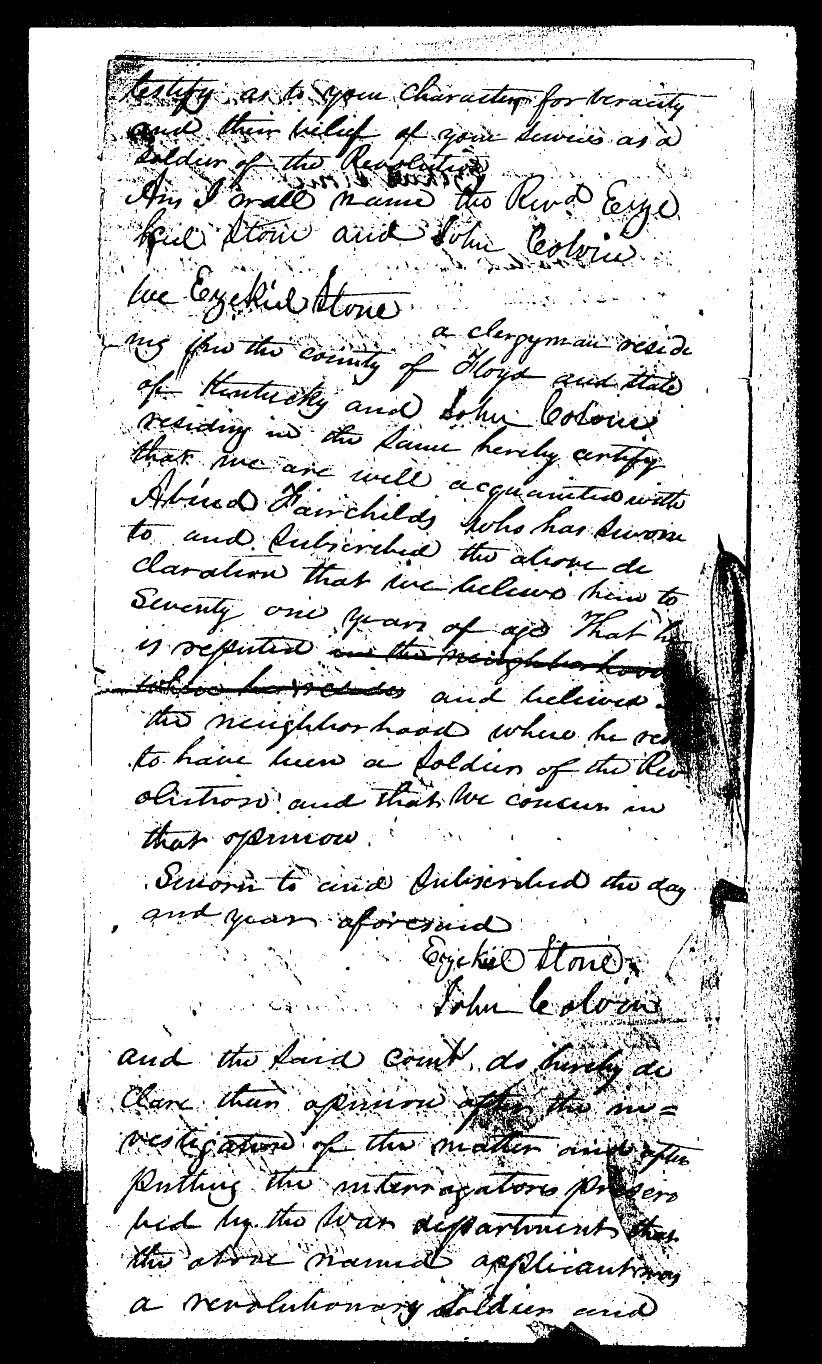 testify as to your Character for veracity
and their belief of your services as a
Soldier of the Revolution
Ans I will name the Revd Eze
kiel Stone and John Colvin
We Ezekiel Stone
a clergyman residi
ng in the county of Floyd and state
of Kentucky and John Colvin
residing in the same hereby certify
that we are well acquainted with
Abiud Fairchilds who has sworn
to and Subscribed the above de
claration that we believe him to
Seventy one years of age That he
is reputed in the neighborhood
where he resides and believed
the neighborhood where he res
to have been a Soldier of the Rev
olution and that We concur in
that opinion
Sworn to and Subscribed the day
and year aforesaid
Ezekiel Stone
John Colvin
and the Said Court do hereby de
Clare their opinion after the in=
vestigation of the matter and after
putting the interrogatories prescri
bed by the War department that
the above named applicant was
a revolutionary Soldier and